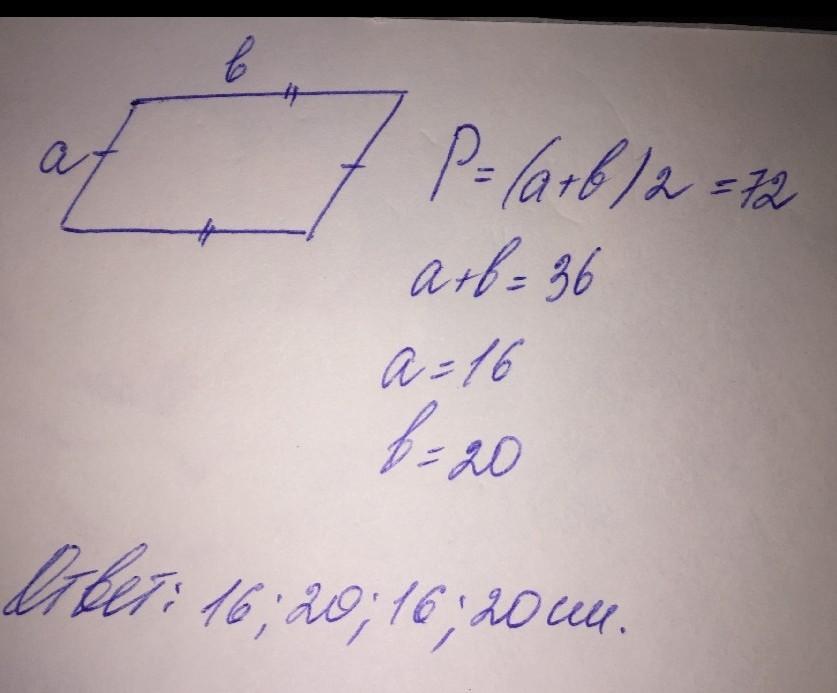 в
a
P=(a+в)2=72
a+в=36
a=16
в=20
Ответ: 16; 20; 16; 20см.